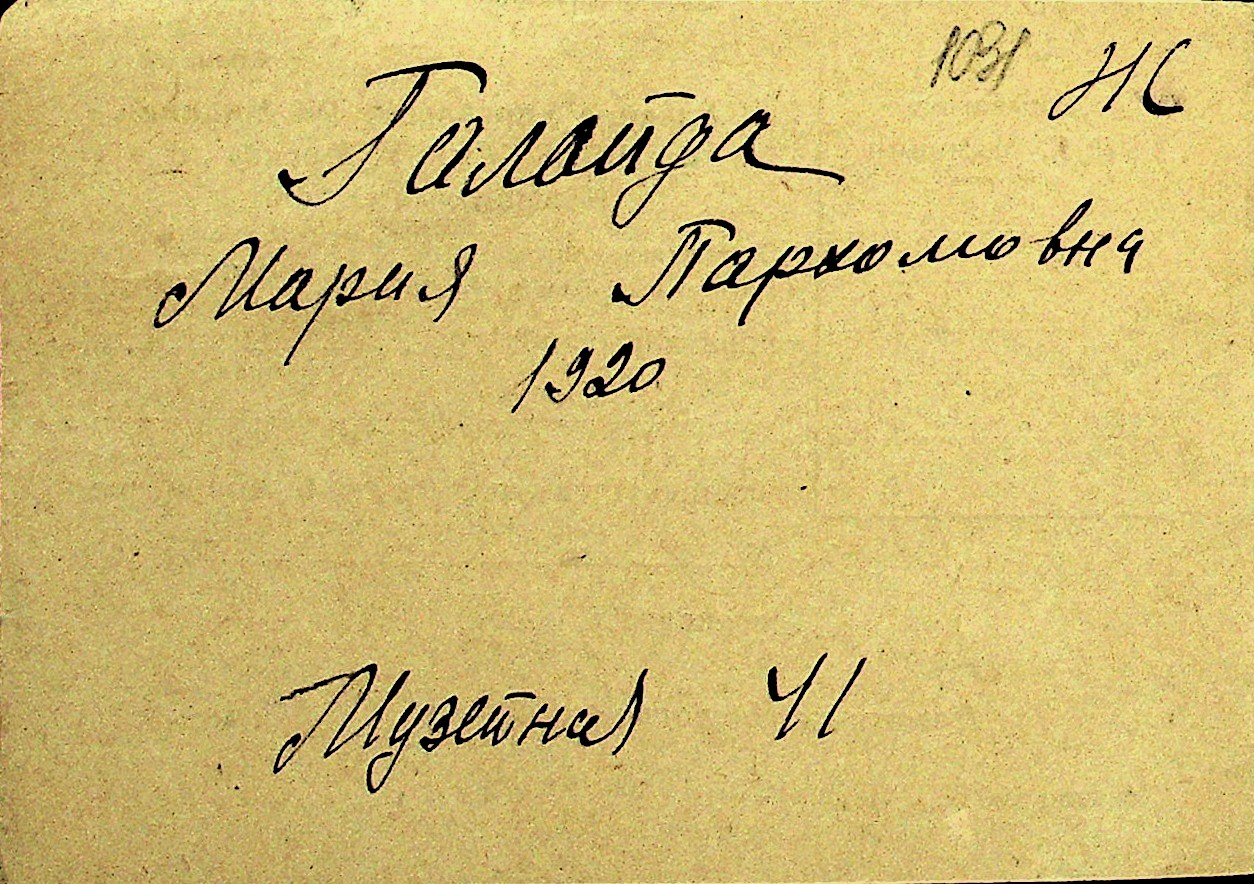 1031 НС
Галайда
Мария Пархомовна
1920
Музейная 41